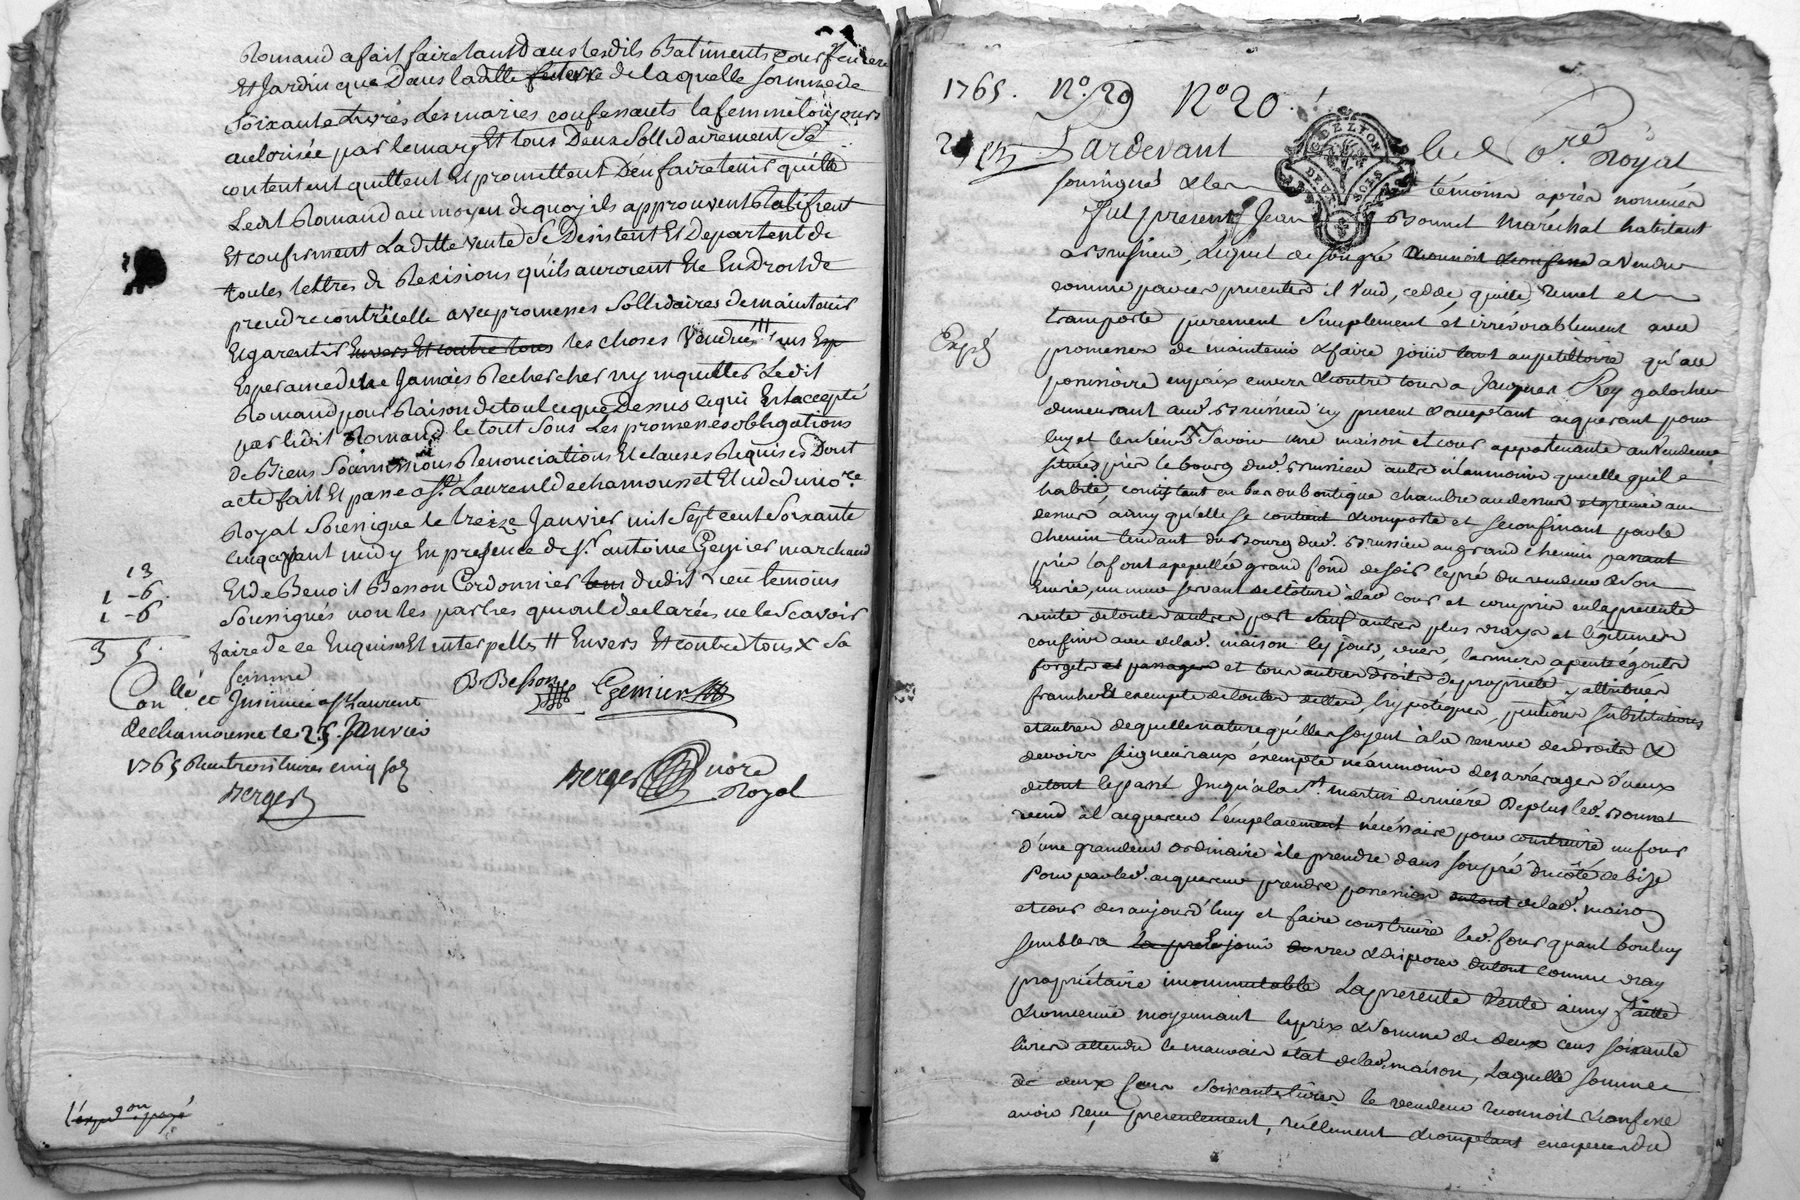 Romand a fait faire tant Dans lesdits Batiments cour feniere
Et Jardin que Dans laditte feniere de laquelle somme de
Soixante Livres Les maries confessants la femme toujours
autorisée par le mary Et tous Deux Sollidairement Se
contentent quittent Et promettent D'en faire tenir quitte
Ledit Romand au moyen de quoy ils approuvent Ratifient
Et confirment La ditte vente Se Desistent Et Departent de
toutes lettres de Rexisions qu'ils auroient Ete En droit de
prendre contre icelle avec promesses Sollidaires de maintenir
Et garentir Envers Et contre tous les choses Vendues sans Esp
Esperance de ne Jamais Rechercher ny inquietter Ledit
Romand pour Raison de tout ce que Dessus ce qui Est accepté
par ledit Romand le tout Sous Les promesses obligations
de Biens Soumissions Renonciations Et clauses Requises Dont
acte fait Et passé a St. Laurent de chamousset Etude du no.re
Royal Soussigné le treize Janvier mil Sept cent Soixante
cinq avant midy En presence de Sr. antoine Genier marchand
Et de Benoit Besson Cordonnier tous dudit Lieu temoins
Soussignés non les parties qui ont declaré ne le Scavoir
faire de ce Enquises Et interpellés # Envers Et contre tous x Sa
femme
13
1 - 6.
1 - 6
3 5.
B Besson Genier
Con.lé et Insinué a St Laurent
de chamousset le 25. Janvier
1765 Reçu trois livres cinq sols
Berger
Berger no.re
Royal
l'exp.on payé
1765. N.o 29 N.o 20.
G. DE LYON
DEUX SOLS
Pardevant le No.re Royal
soussigné & les témoins après nommés
Fut present Jean Bonnet Maréchal habitant
a Brussieu, Lequel de son gré reconnoit & confesse a vendu
comme par ces presentes il vend, cedde, quitte remet et
transporte purement Simplement et irrévocablement avec
Expé
promesses de maintenir & faire jouir tant au petitoire qu'au
possessoire en paix envers & contre tous a Jacques Rey galochier
demeurant aud. Brussieu icy present & acceptant acquerant pour
luy et les siens Savoir une maison et cour appartenante au Vendeur
située près le bourg dud. Brussieu autre néanmoins que celle qu'il
habite, consistant en bas ou boutique chambre au dessus et grenier au
dessus ainsy qu'elle se contient & comporte et se confinant par le
chemin tendant du Bourg dud. Brussieu au grand chemin passant
près la font appellée grand fond de soir le pré du vendeur & son
Ecurie, un mur servant de clôture à lad. cour et compris en la presente
vente de toutes autres part sauf autres plus vrays et légitimes
confins avec de lad. maison les jours, vues, larmiers a pente égouts
forgets et passages et tous autres droits de propriété y attribués
franche & exempte de toutes dettes, hypotéques, pensions substitutions
et autres de quelle nature qu'elles soyent à la reserve des droits &
devoirs seigneuriaux exempte néanmoins des arrérages d'iceux
de tout le passé jusqu'à la St. martin derniére De plus led. Bonnet
vend à l'acquereur l'emplacement nécéssaire pour construire un four
d'une grandeur ordinaire à le prendre dans son pré du côté de bize
Pour par led. acquereur prendre possession de lad. maison
et cour dès aujourd'huy et faire construire led. four quant bon luy
semblera jouir & disposer du tout comme vray
propriétaire incommutable La presente Vente ainsy faitte
& convenue moyennant le prix & Somme de deux cens soixante
livres attendu le mauvais état de lad. maison, Laquelle somme
de deux cens Soixante livres le vendeur reconnoit & confesse
avoir reçu presentement, réellement & comptant